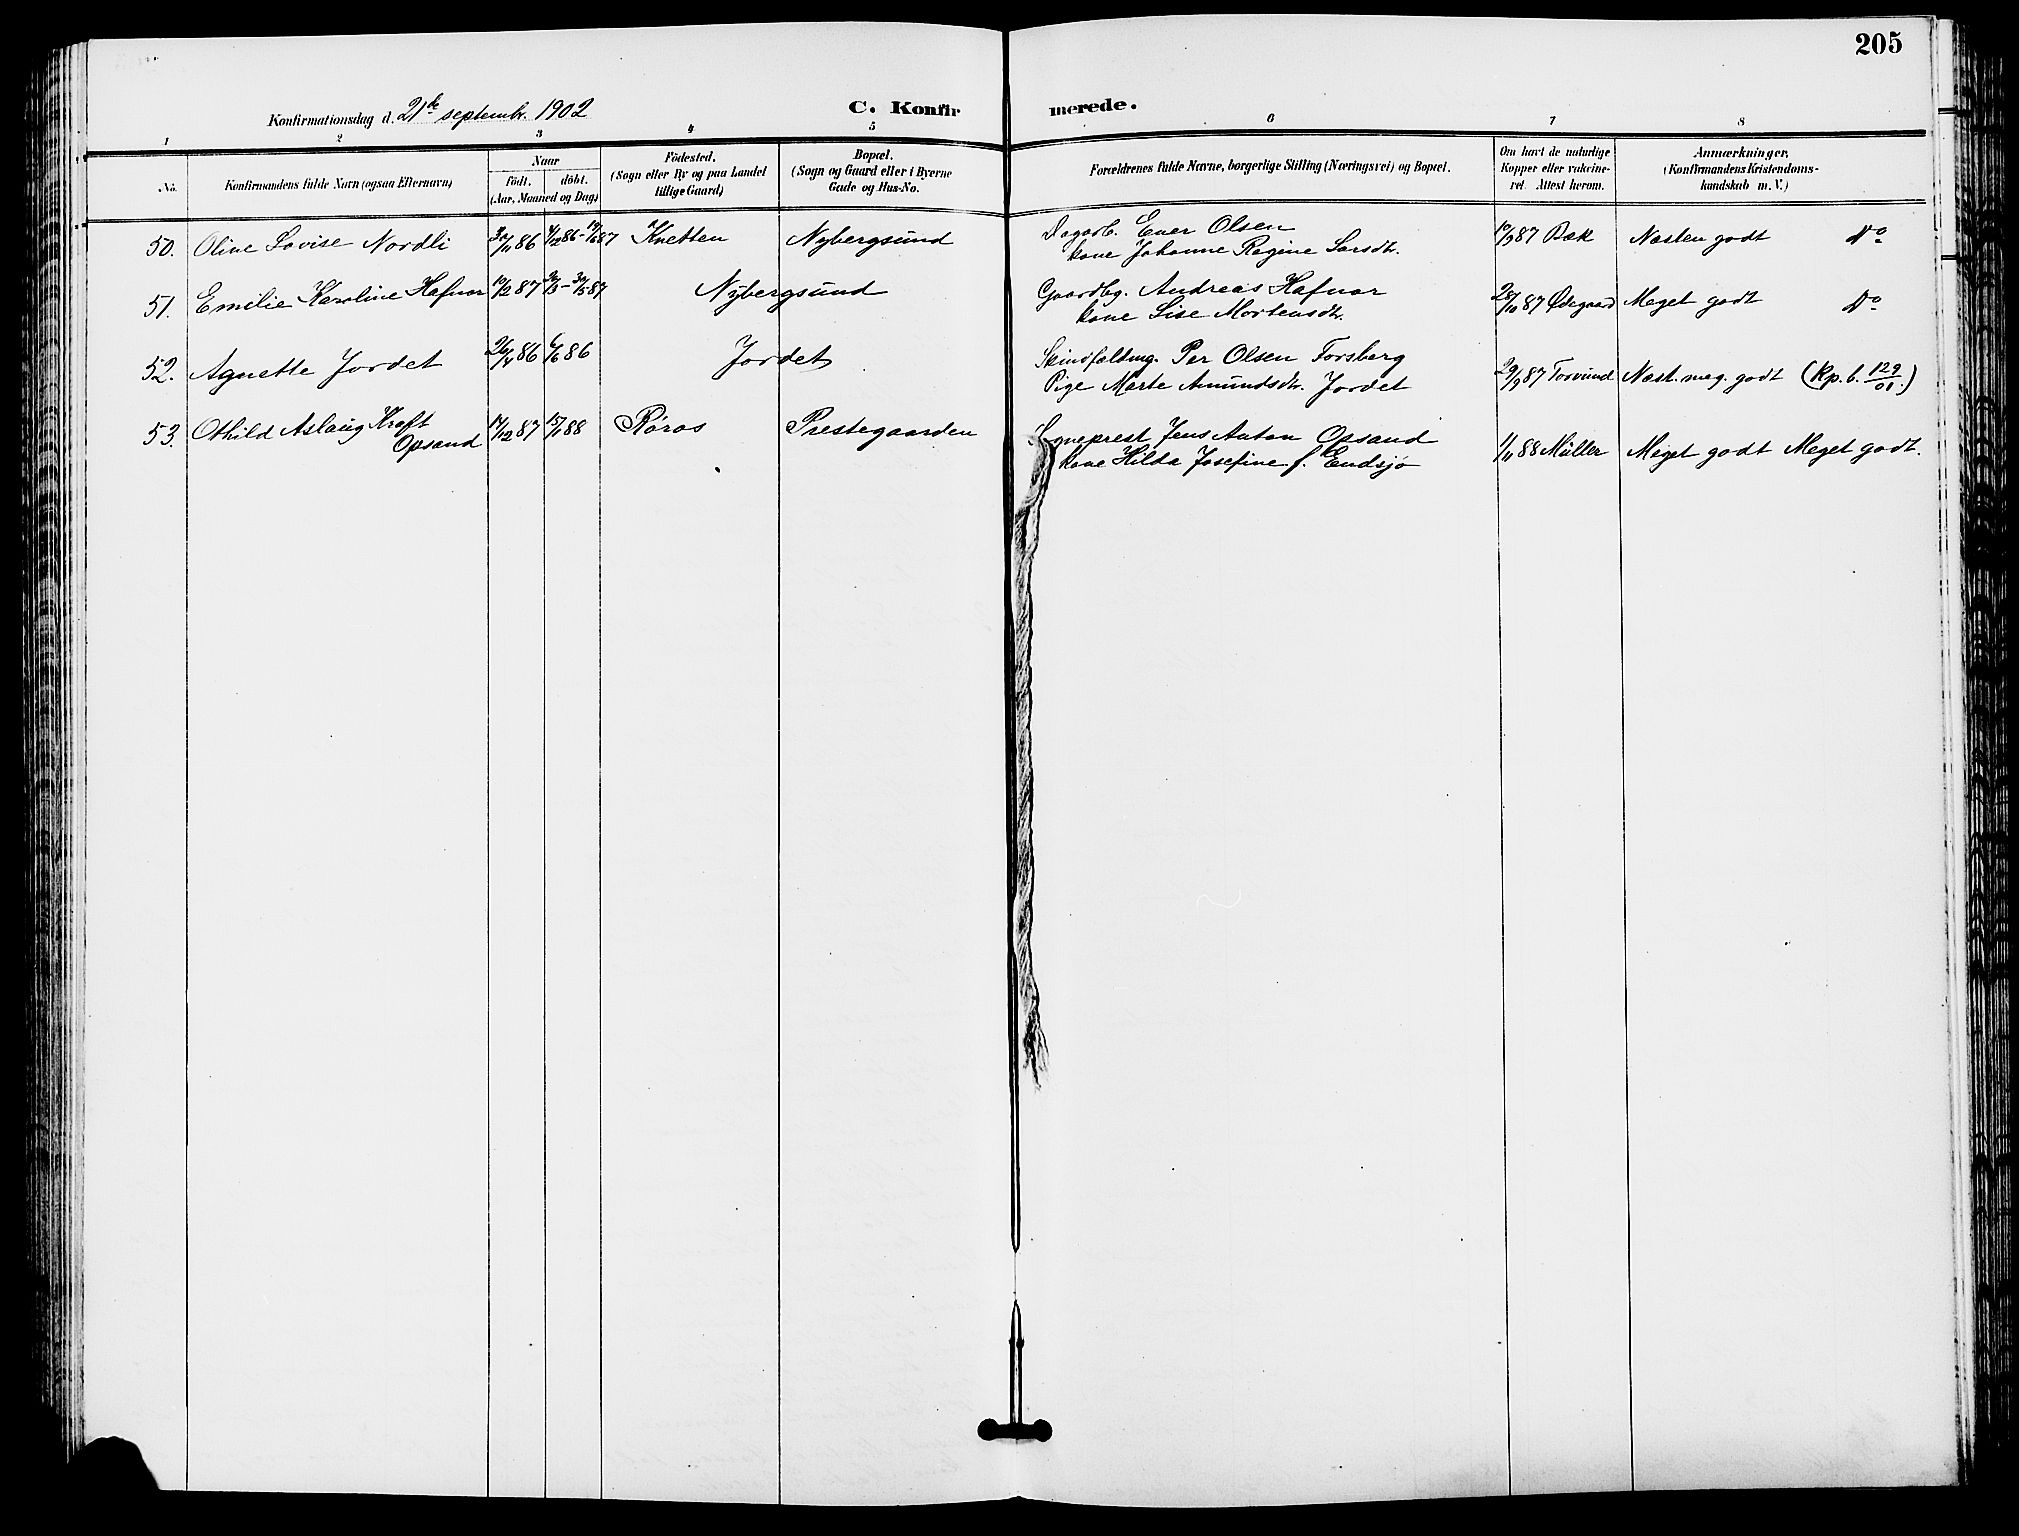 205
Konfirmationsdag d. 21de septembr. 1902
C. Konfirmerede.
1 2 3 4 5 6 7 8
No.
Konfirmandens fulde Navn (ogsaa Efternavn)
Naar
födt. döbt.
(Aar, Maaned og Dag)
Födested.
(Sogn eller By og paa Landet
tillige Gaard)
Bopæl.
(Sogn og Gaard eller i Byerne
Gade og Hus-No.
Forældrenes fulde Navne, borgerlige Stilling (Næringsvei) og Bopæl.
Om havt de naturlige
Kopper eller vakcine-
ret. Attest herom.
Anmærkninger,
(Konfirmandens Kristendoms-
kundskab m. V.)
50. Oline Lovise Nordli 30/11 86 4/12 86 - 19/6 87 Knetten Nybergsund Dagarb. Ener Olsen 17/9 87 Bæk Næsten godt No
kone Johanne Regine Larsdtr.
51. Emilie Karoline Hafnor 10/2 87 - 87 Nybergsund Gaardbg. Andreas Hafnor 28/10 87 Ødegaard Meget godt No
kone Lise Mortensdtr.
52. Agnette Jordet 26/4 86 6/6 86 Jordet Skindfældmg. Per Olsen Forsberg
Pige Marte Amundsdtr. Jordet 29/9 87 Torsund Næst. meg. godt (kp. b. 129/01.)
53. Othild Aslaug Kraft 14/12 87 15/1 88 Röros Prestegaarden Sogneprest Jens Anton Opsand
Opsand kone Hilda Josefine f. Endsjø 1/11 88 Müller Meget godt Meget godt.